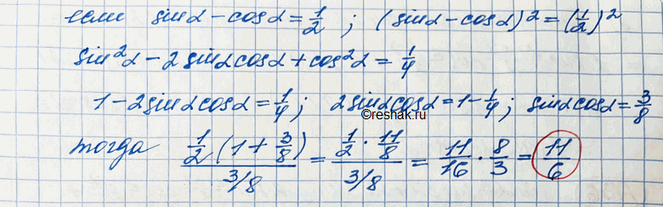 если sinα - cosα = 1/2 ; (sinα - cosα)² = (1/2)²
sin²α - 2 sinα cosα + cos²α = 1/4
1 - 2sinα cosα = 1/4 ; 2 sinα cosα = 1 - 1/4 ; sinα cosα = 3/8
©reshak.ru
тогда (1/2 (1 + 3/8))/(3/8) = (1/2 · 11/8)/(3/8) = 11/16 · 8/3 = 11/6